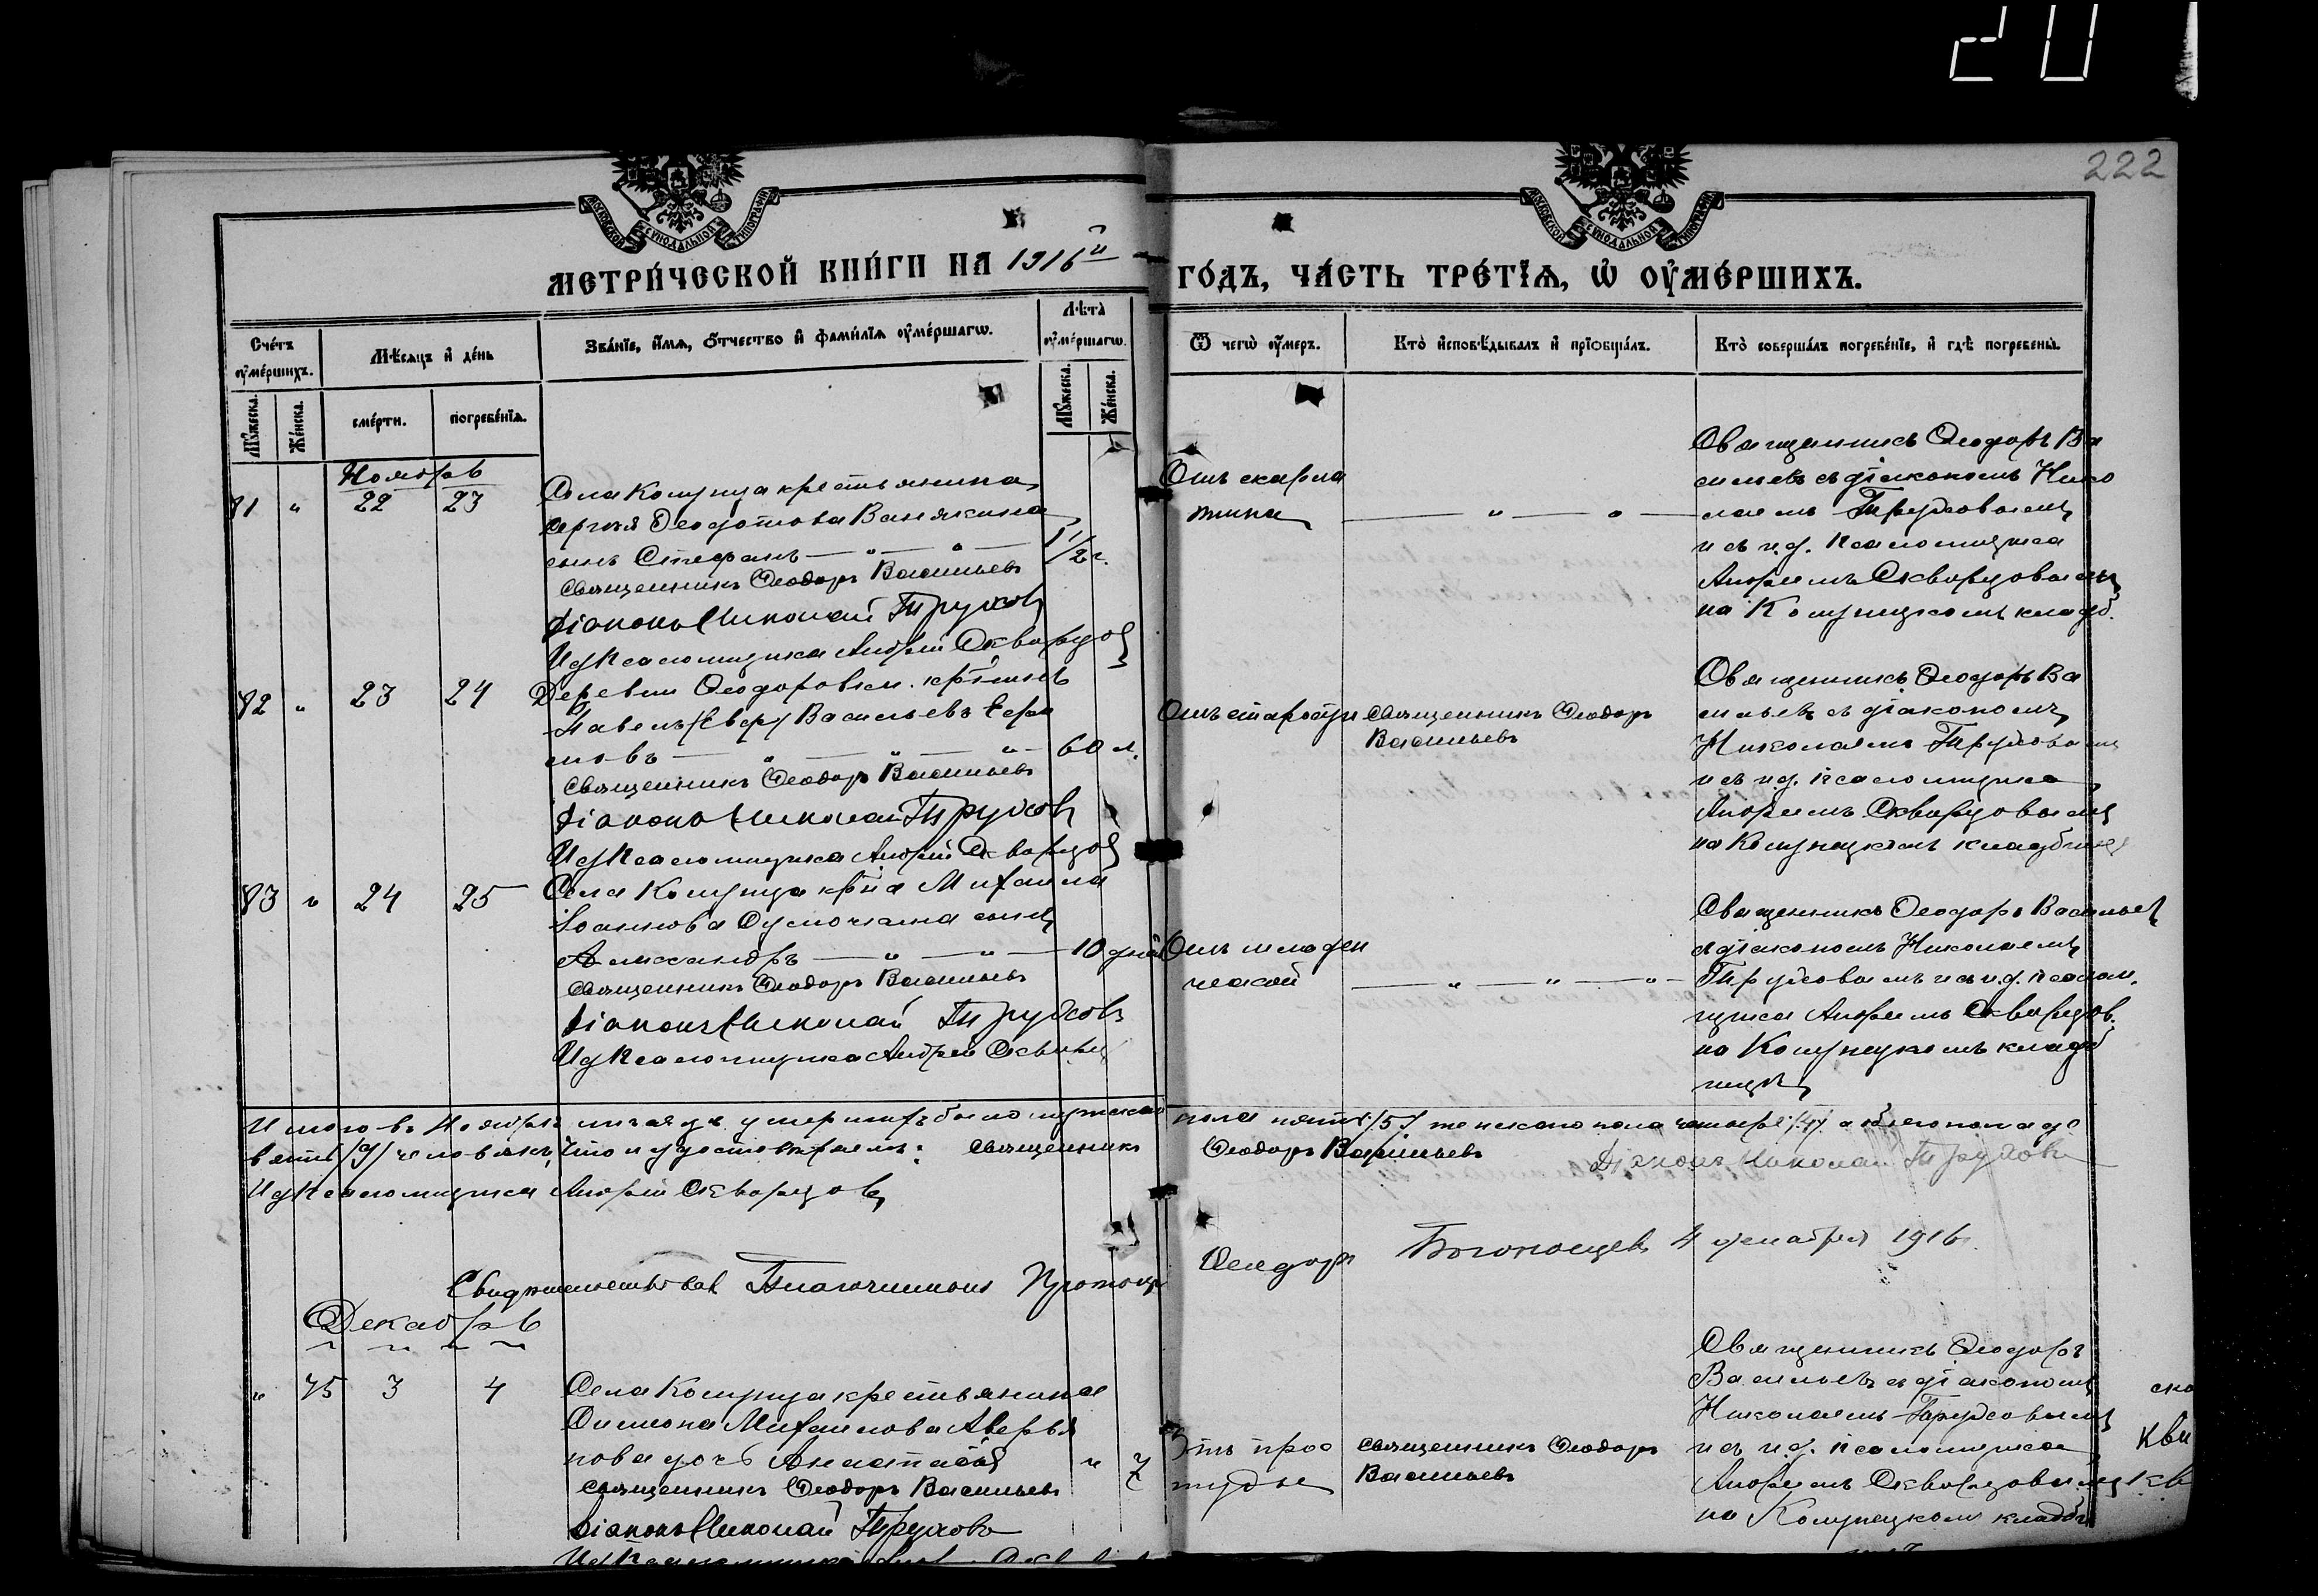 20
222
МОСКОВСКОЙ СѴНОДАЛЬНОЙ ТИПОГРАФІИ
МОСКОВСКОЙ СѴНОДАЛЬНОЙ ТИПОГРАФІИ
МЕТРИ́ЧЕСКОЙ КНИ́ГИ НА 1916й
ГО́ДЪ, ЧА́СТЬ ТРЕ́ТІѦ, Ѡ ОУМЕ́РШИХЪ.
Сче́тъ оуме́ршихъ.
Мѣсяцъ и де́нь
Зва́нїе, и́мѧ, о́тчество и фами́лїѧ оуме́ршагѡ.
Лѣта̀ оуме́ршагѡ.
Мꙋжеска.
Же́нска.
сме́рти.
погребе́нїѧ.
Мꙋжеска.
Же́нска.
Ѿ чегѡ̀ оу́меръ.
Кто̀ исповѣ́дывалъ и прїобща́лъ.
Кто̀ соверша́лъ погребе́нїе, и гдѣ̀ погребены̀.
Ноябрь
81 " 22 23
Села Комунца крестьянина
Сергия Ѳеодотова Ванякина
сынъ Стефанъ — " — " — 1 1/2 г.
Священникъ Ѳеодоръ Васильевъ
Діаконъ Николай Трудовъ
Ид Псаломщика Андрей Скворцов
Отъ скарла
тина
— " — " —
Священникъ Ѳеодоръ Ва
сильевъ съ діакономъ Нико
лаемъ Трудовымъ
и съ и.д. псаломщика
Андреемъ Скворцовымъ
на Комунецкомъ кладб.
82 " 23 24
Деревни Ѳеодоровки кр-нинъ
Павелъ Васильевъ Ефи
мовъ — " — " — " — 60 л.
Священникъ Ѳеодоръ Васильевъ
Діаконъ Николай Трудовъ
Ид Псаломщика Андрей Скворцов
Отъ старости
Священникъ Ѳеодоръ
Васильевъ
Священникъ Ѳеодоръ Ва
сильевъ съ діакономъ
Николаемъ Трудовымъ
и съ и.д. псаломщика
Андреемъ Скворцовымъ
на Комунецкомъ кладбищѣ
83 " 24 25
Села Комунца кр-на Михаила
Іоаннова сынъ
Александръ — " — " — 10 дней
Священникъ Ѳеодоръ Васильевъ
Діаконъ Николай Трудовъ
Ид Псаломщика Андрей Скворц
Отъ младен
ческой
— " — " — " —
Священникъ Ѳеодоръ Васильев
съ діакономъ Николаемъ
Трудовымъ и съ и.д. псалом.
щика Андреемъ Скворцов.
на Комунецкомъ кладб
ищѣ
Итого въ Ноябрѣ мѣсяцѣ умершихъ было мужскаго
пола пять /5/ женскаго пола четыре /4/ а обоего пола де
вять /9/ человѣкъ, что и удостовѣряемъ: Священникъ
Ѳеодоръ Васильевъ
Діаконъ Николай Трудовъ
Ид Псаломщика Андрей Скворцовъ
Свидѣтельствовал Благочинный Протоіер
Ѳеодоръ Богоносцевъ 4 декабря 1916
Декабрь
" 75 3 4
Села Комунца крестьянина
Симеона Михаилова Аверья
нова дочь Анастасія " 7
Священникъ Ѳеодоръ Васильевъ
Діаконъ Николай Трудовъ
Отъ прос
туды
Священникъ Ѳеодоръ
Васильевъ
Священникъ Ѳеодоръ
Васильевъ съ діакономъ
Николаемъ Трудовымъ
и съ и.д. псаломщика
Андреемъ Скворцовымъ
на Комунецкомъ кладби
кви